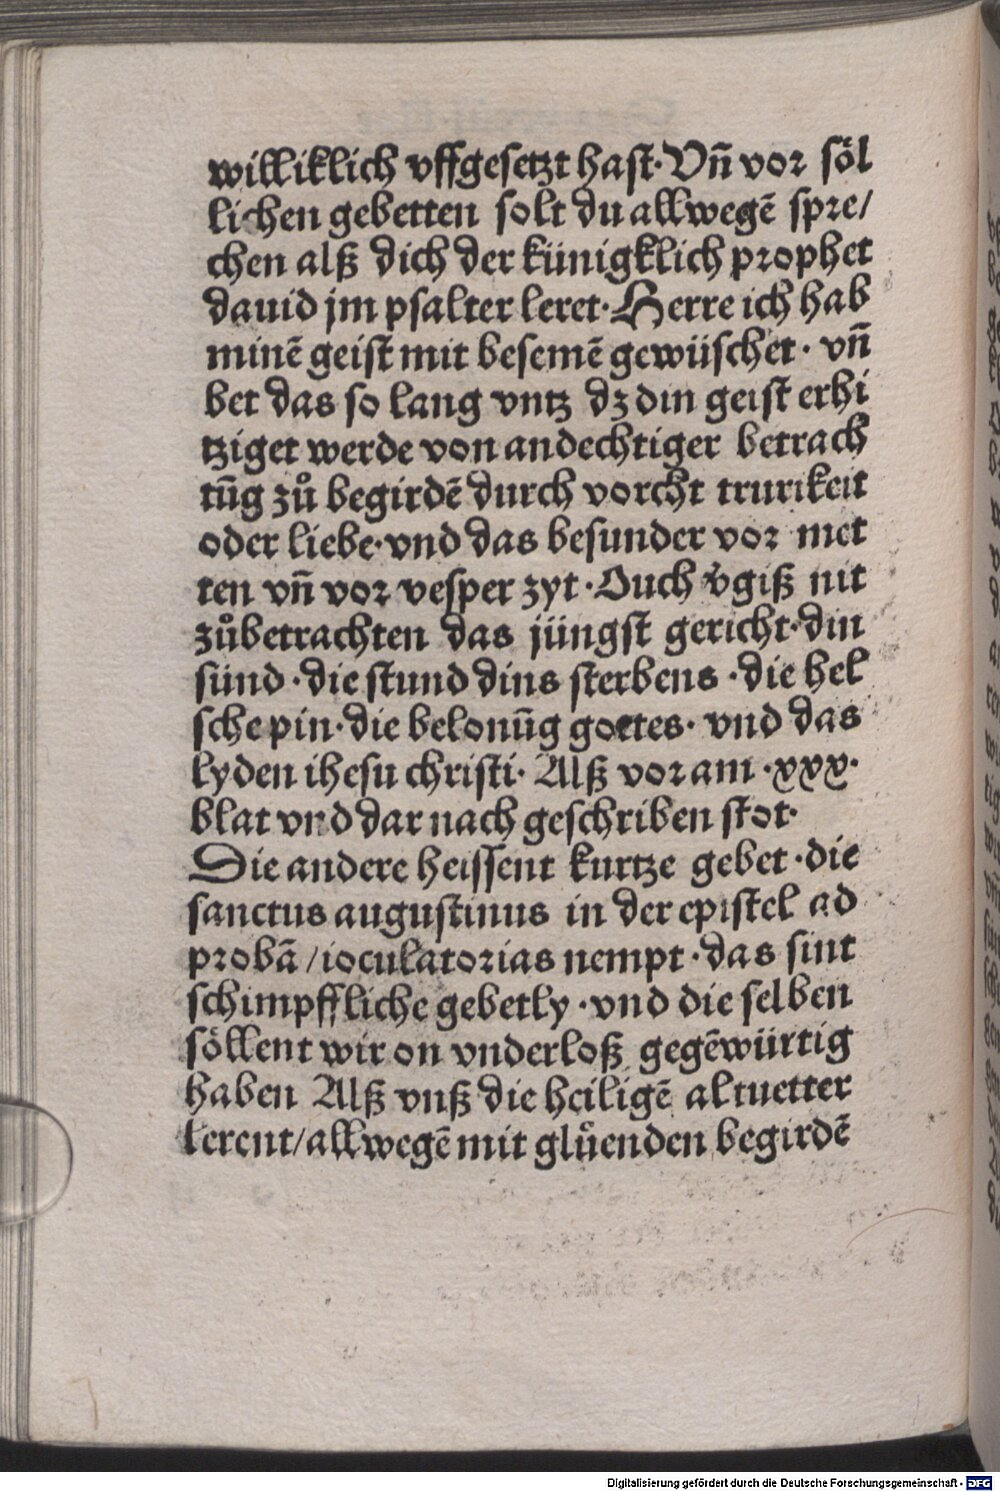 williklich vffgesetzt hast· Vn̄ vor söl
lichen gebetten solt du allwegē spre/
chen alß dich der künigklich prophet
dauid jm psalter leret· Herre ich hab
minē geist mit besemē gewüschet · vn̄
bet das so lang vntz dz din geist erhi
tziget werde von andechtiger betrach
tūg zů begirdē durch vorcht trurikeit
oder liebe· vnd das besunder vor met
ten vn̄ vor vesper zyt · Ouch v̄giß nit
zůbetrachten das jüngst gericht· din
sünd · die stund dins sterbens · die hel
sche pin· die belonūg gottes· vnd das
lyden ihesu christi· Alß vor am ·xxx·
blat vnd dar nach geschriben stot·
Die andere heissent kurtze gebet · die
sanctus augustinus in der epistel ad
probā / ioculatorias nempt · das sint
schimpffliche gebetly · vnd die selben
söllent wir on vnderloß gegēwürtig
haben Alß vnß die heiligē altuetter
lerent/ allwegē mit glůenden begirdē
Digitalisierung gefördert durch die Deutsche Forschungsgemeinschaft - DFG